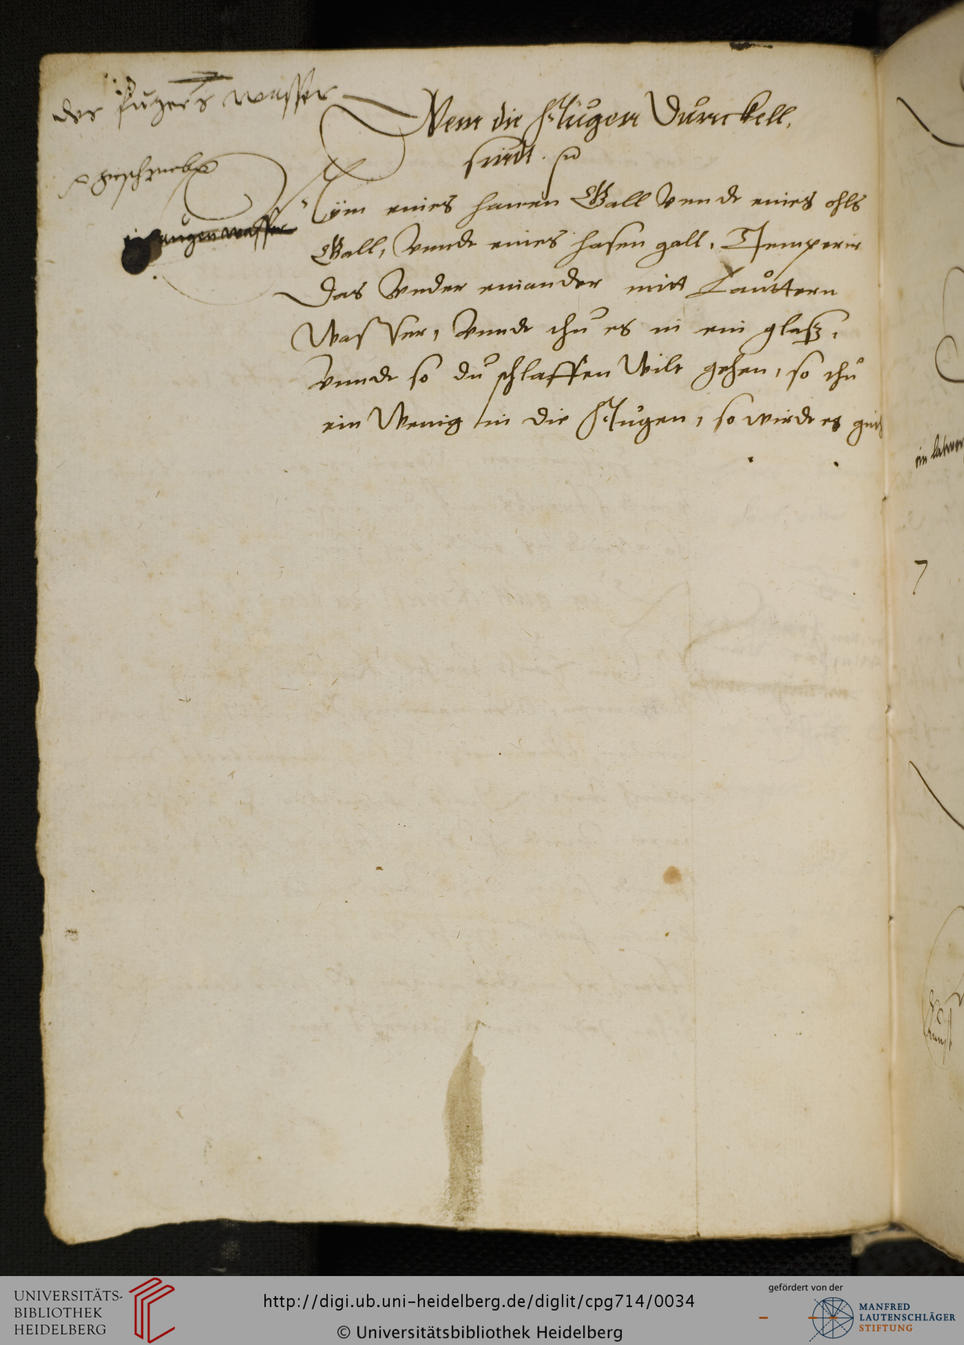 der fuger wasser
geschrieben
ein augenwasser
Wem die Augen Dunckell
sindt
Nym eines hanen Gall vnnd eines ohls
Gall, vnnd eines hasen gall, Temperir
Das vnder einander mitt Lauttern
Wasser, vnnd thu es in ein glaß,
vnnd so du schlaffen Wilt gehen, so thu
ein Wenig in die Augen, so wirdt es gut
ein
7
kunst
UNIVERSITÄTS-
BIBLIOTHEK
HEIDELBERG
http://digi.ub.uni-heidelberg.de/diglit/cpg714/0034
© Universitätsbibliothek Heidelberg
gefördert von der
MANFRED
LAUTENSCHLÄGER
STIFTUNG